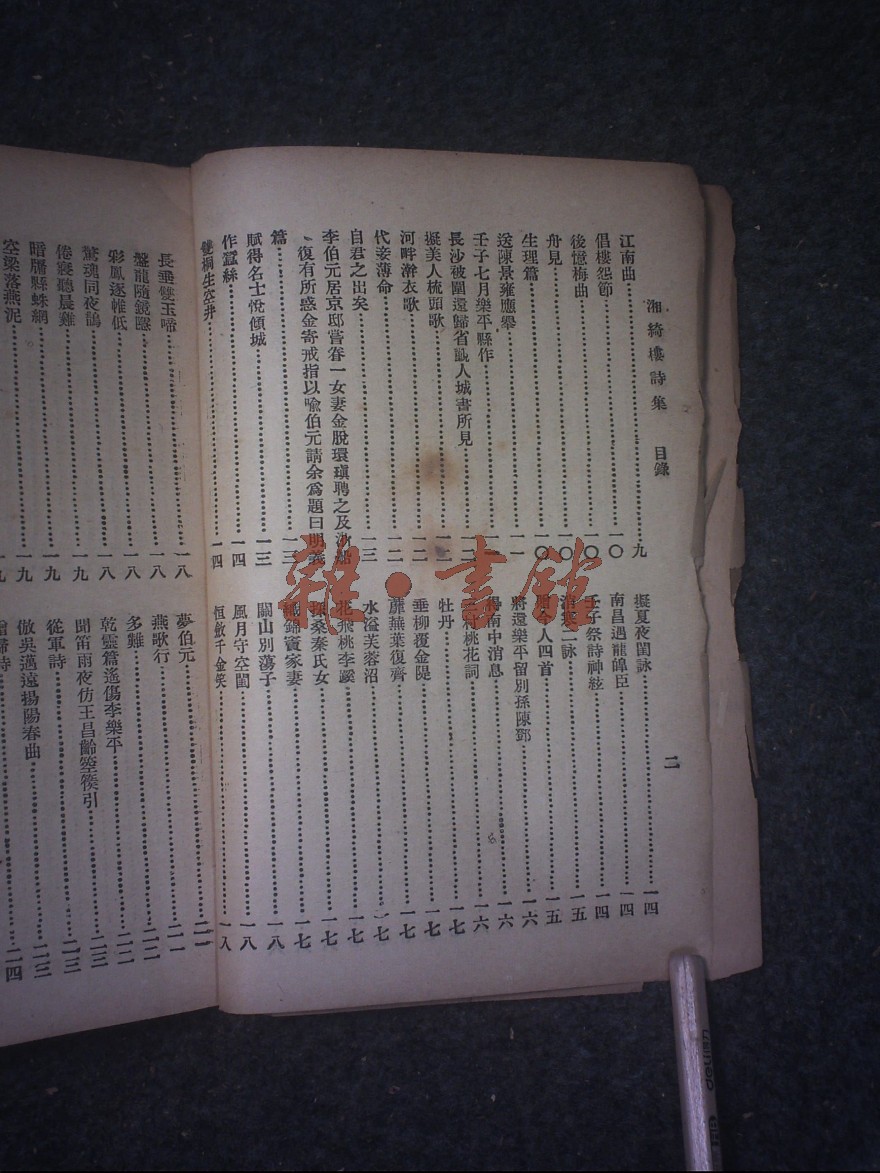 湘綺樓詩集　目錄
二
江南曲……九
倡樓怨節……一〇
後憶梅曲……一〇
舟見……一〇
生理篇……一〇
送陳景雍應舉……一一
壬子七月樂平縣作
長沙被圍還歸省親人城書所見……一二
擬美人梳頭歌
河畔澣衣歌……一二
代妾薄命……一二
自君之出矣……一三
李伯元居京邸嘗眷一女妻金脫環瑱聘之及
復有所惑金寄戒指以喩伯元請余爲題曰明義
篇……一三
賦得名士悅傾城……一三
作蠶絲……一四
雙桐生空井……一四
擬夏夜閨詠……一四
南昌遇龍皥臣……一四
壬子祭詩神絃……一四
消寒二詠……一五
人四首……一五
將還樂平留別孫陳鄧……一六
得南中消息……一六
村桃花詞……一六
牡丹……一七
垂柳覆金隄……一七
蘼蕪葉復齊……一七
水溢芙蓉沼……一七
花飛桃李蹊……一七
採桑秦氏女……一七
織錦竇家妻……一七
關山別蕩子……一八
風月守空閨……一八
恒斂千金笑……一八
長垂雙玉啼……一八
盤龍隨鏡隱……一八
彩鳳逐帷低……一八
驚魂同夜鵲……一九
倦寢聽晨雞……一九
暗牖縣蛛網……一九
空梁落燕泥……一九
夢伯元……二一
燕歌行……二一
多難……二二
乾靈篇遙傷李樂平……二二
聞笛雨夜仿王昌齡箜篌引……二三
從軍詩……二三
倣吳邁遠揚陽春曲……二三
歸詩……二四
雜·書館
deli